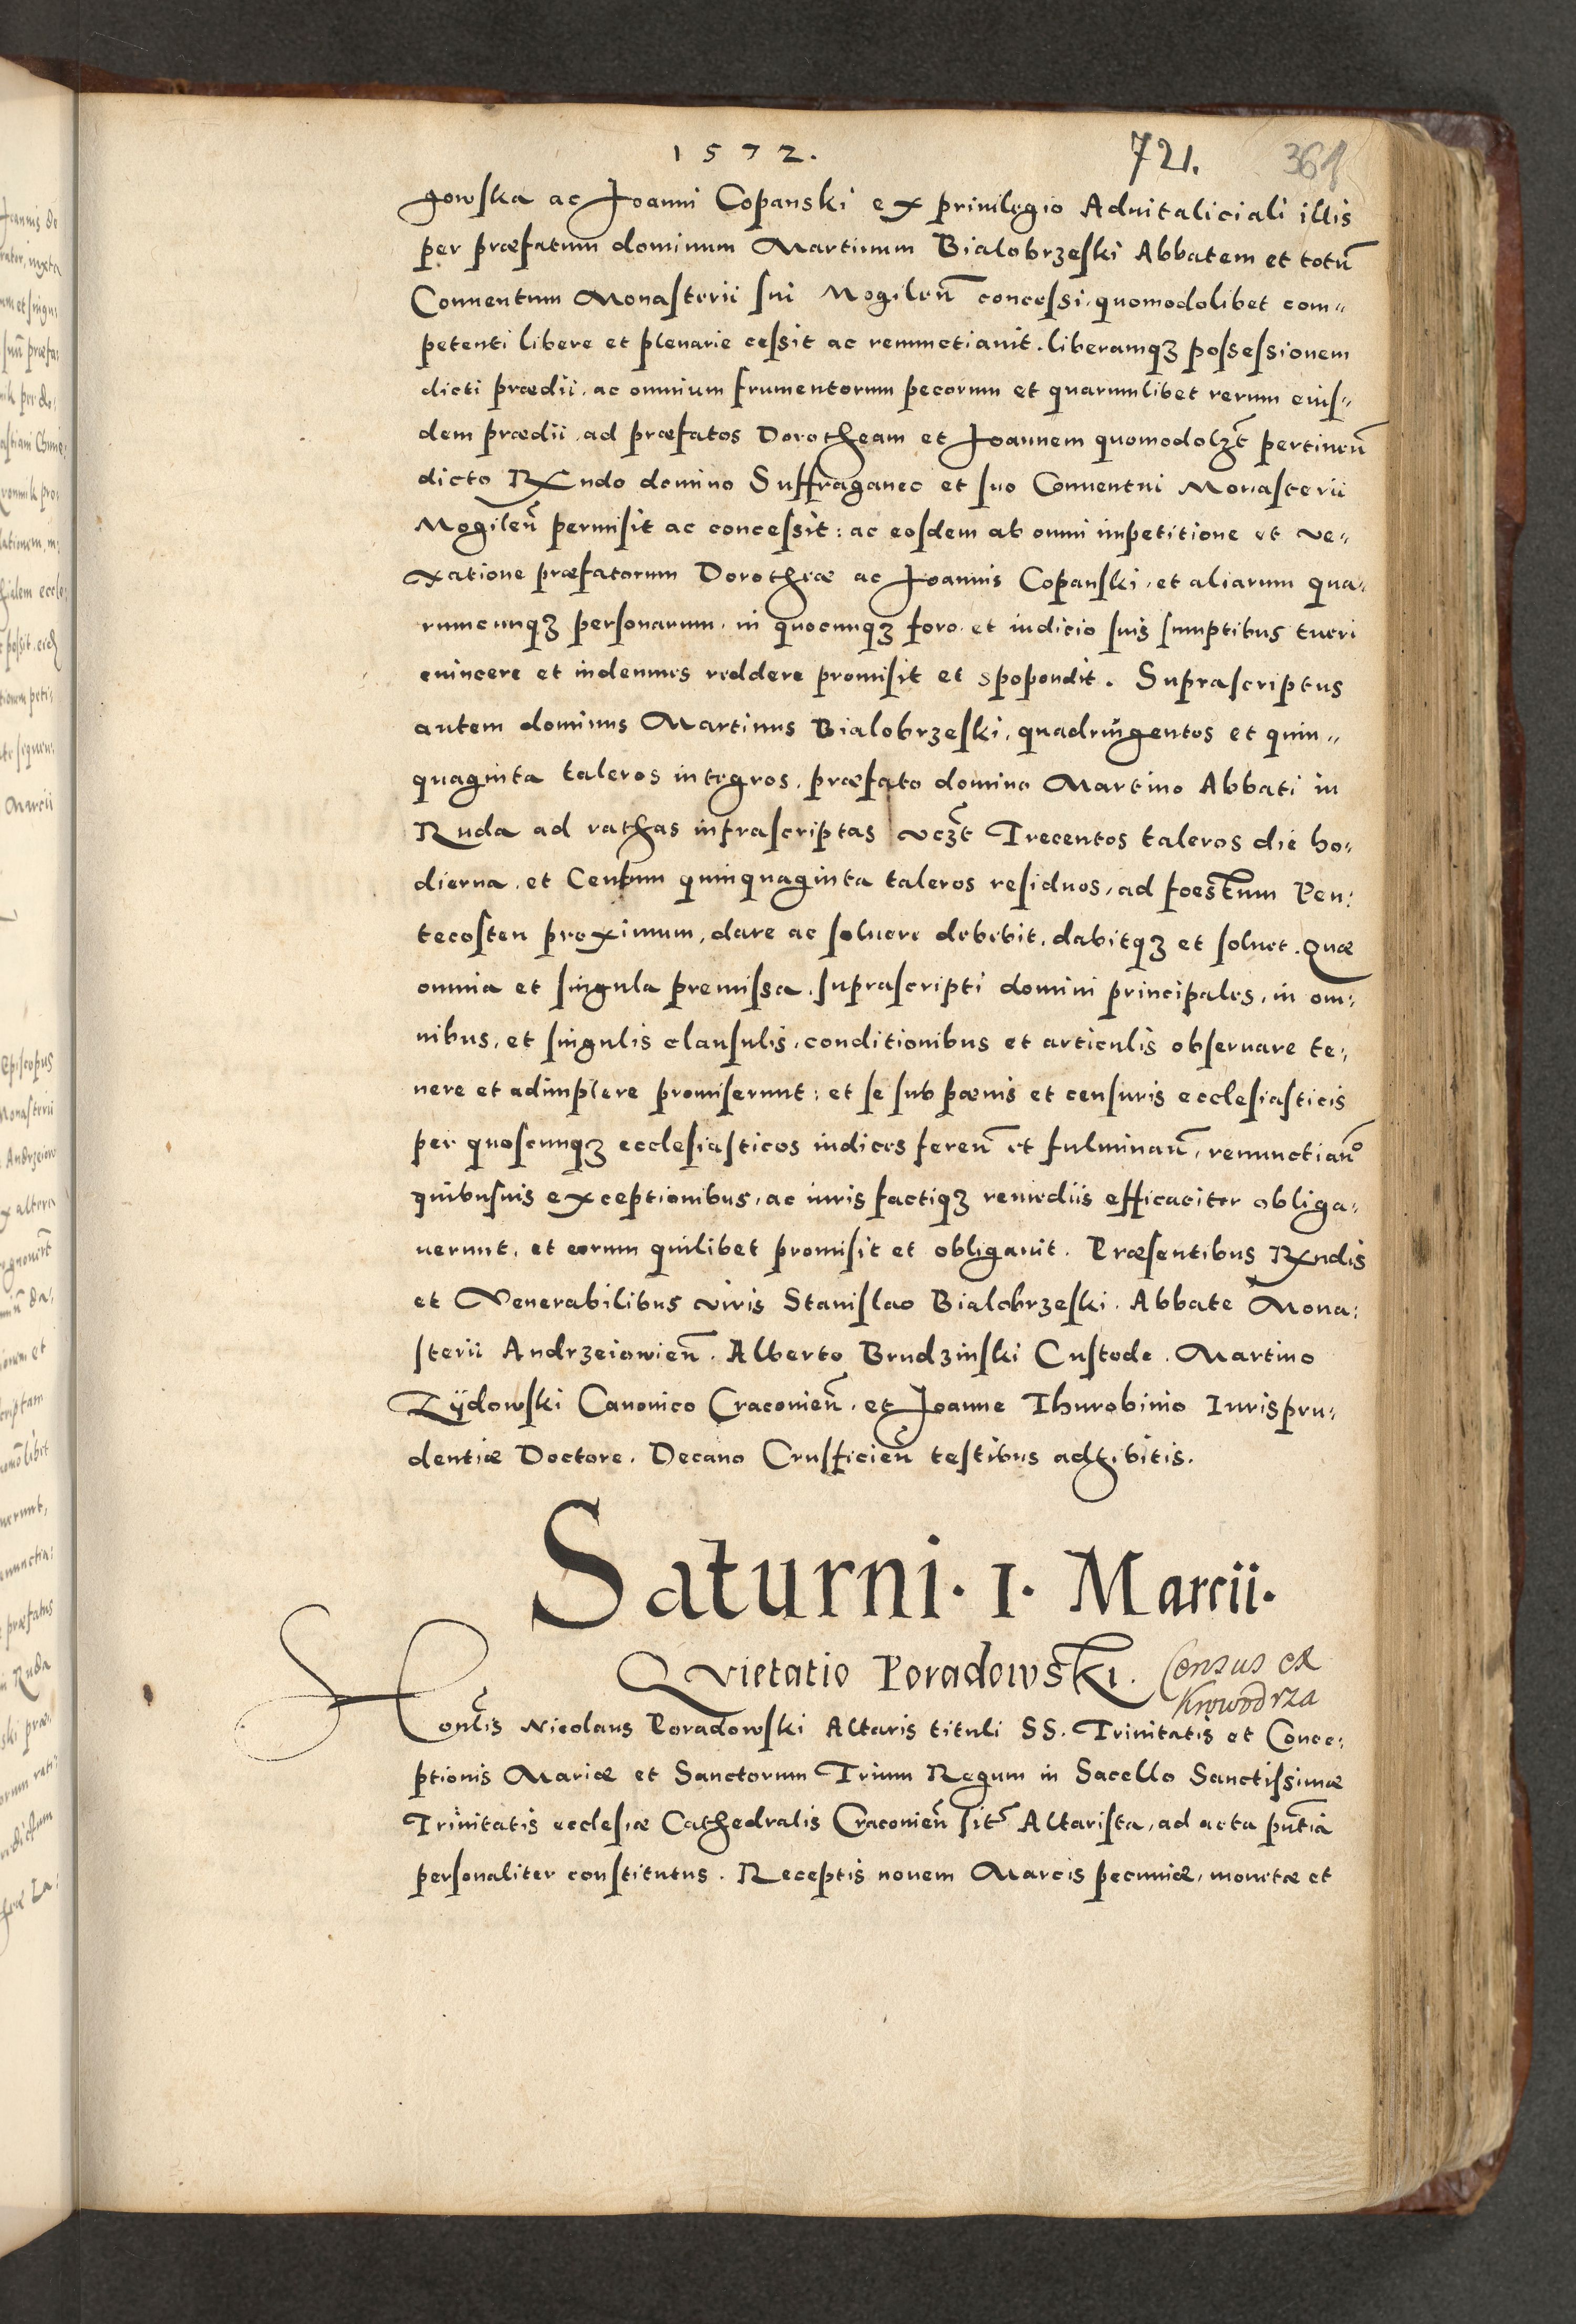 1572.
721.
364
gowska ac Joanni Copanski ex priuilegio Aduitaliciali illis
per præfatum dominum Martinum Bialobrzeski Abbatem et totū
Conuentum Monasterii sui Mogileñ concessi, quomodolibet com„
petenti libere et plenarie cessit ac renunctiauit. liberamqʒ possessionem
dicti prædii, ac omnium frumentorum pecorum et quarumlibet rerum eius„
dem prædii, ad præfatos Dorotheam et Joannem quomodolʒt pertineñ
dicto Rxndo domino Suffraganeo et suo Conuentui Monasterii
Mogileñ permisit ac concessit: ac eosdem ab omni impetitione et ve„
xatione præfatorum Dorotheæ ac Joannis Copanski, et aliarum qua„
rumcunqʒ personarum, in quocunqʒ foro, et iudicio suis sumptibus tueri
euincere et indemnes reddere promisit et spopondit. Suprascriptus
autem dominus Martinus Bialobrzeski, quadringentos et quin„
quaginta taleros integros, præfato domino Martino Abbati in
Ruda ad rathas infrascriptas vcʒt Trecentos taleros die ho:
dierna, et Centum quinquaginta taleros residuos, ad foestum Pen:
tecosten proximum, dare ac soluere debebit, dabitqʒ et soluet. Quæ
omnia et singula premissa, suprascripti domini principales, in om:
nibus, et singulis clausulis, conditionibus et articulis obseruare te:
nere et adimplere promiserunt: et se sub pœnis et censuris ecclesiasticis
per quoscunqʒ ecclesiasticos iudices fereñ et fulminañ, renunctiañº
quibusuis exceptionibus, ac iuris factiqʒ remediis efficaciter obliga:
uerunt, et eorum quilibet promisit et obligauit. Præsentibus Rxndis
et Venerabilibus viris Stanislao Bialobrzeski, Abbate Mona:
sterii Andrzeiowieñ. Alberto Brudzinski Custode. Martino
Zÿdowski Canonico Cracouieñ. et Joanne Thurobinio Iurispru:
dentiæ Doctore. Decano Crusficieñ testibus adhibitis.
Saturni. 1. Marcii.
Qvietatio Poradowski.
Census ex
Krowodrza
Honlis Nicolaus Poradowski Altaris tituli SS. Trinitatis et Conce:
ptionis Mariæ et Sanctorum Trium Regum in Sacello Sanctissimæ
Trinitatis ecclesiæ Cathedralis Cracouieñ sitⁱ Altarista, ad acta pn̄tia
personaliter constitutus. Receptis nouem Marcis pecuniæ, monetæ et